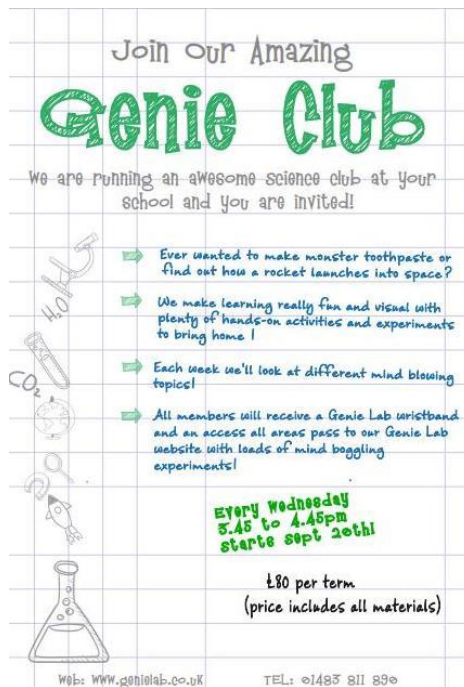 Join our Amazing
Genie Club
We are running an awesome science club at your
school and you are invited!
Ever wanted to make monster toothpaste or
find out how a rocket launches into space?
H₂O
We make learning really fun and visual with
plenty of hands-on activities and experiments
to bring home !
Each week we'll look at different mind blowing
topics!
CO₂
All members will receive a Genie Lab wristband
and an access all areas pass to our Genie Lab
website with loads of mind boggling
experiments!
Every Wednesday
3.45 to 4.45pm
starts sept 20th!
£80 per term
(price includes all materials)
web: www.genielab.co.uk TEL: 01483 811 890